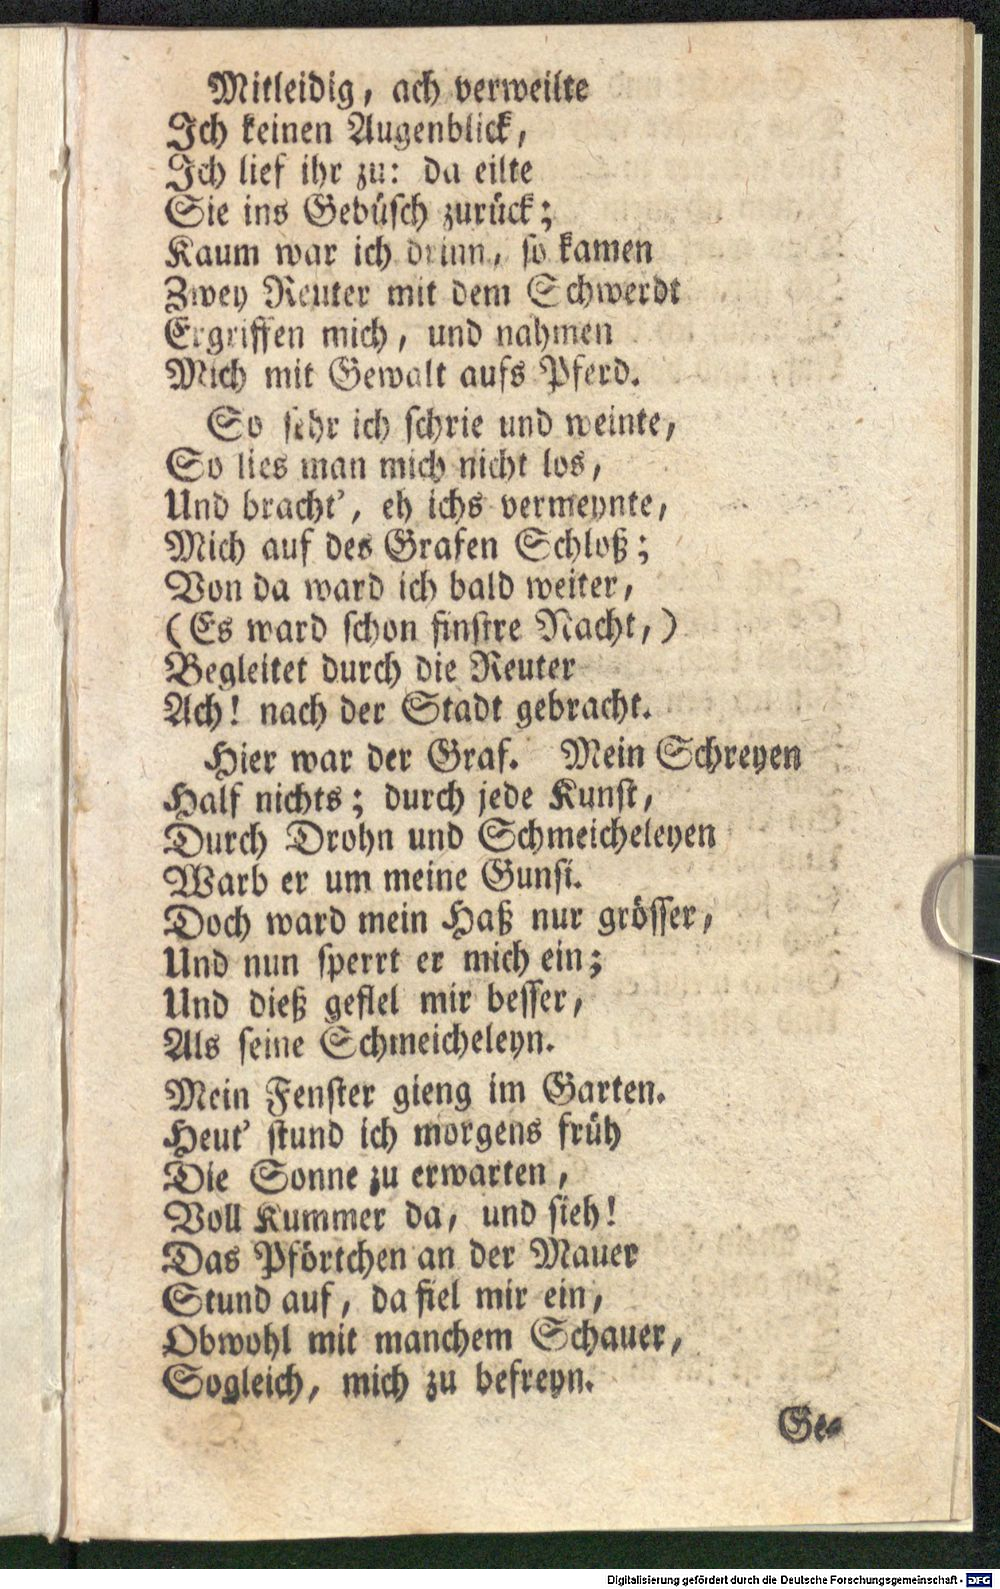 Mitleidig, ach verweilte
Ich keinen Augenblick,
Ich lief ihr zu: da eilte
Sie ins Gebüsch zurück;
Kaum war ich drinn, so kamen
Zwey Reuter mit dem Schwerdt
Ergriffen mich, und nahmen
Mich mit Gewalt aufs Pferd.
So sehr ich schrie und weinte,
So lies man mich nicht los,
Und bracht', eh ichs vermeynte,
Mich auf des Grafen Schloß;
Von da ward ich bald weiter,
(Es ward schon finstre Nacht,)
Begleitet durch die Reuter
Ach! nach der Stadt gebracht.
Hier war der Graf. Mein Schreyen
Half nichts; durch jede Kunst,
Durch Drohn und Schmeicheleyen
Warb er um meine Gunst.
Doch ward mein Haß nur grösser,
Und nun sperrt er mich ein;
Und dieß gefiel mir besser,
Als seine Schmeicheleyn.
Mein Fenster gieng im Garten.
Heut' stund ich morgens früh
Die Sonne zu erwarten,
Voll Kummer da, und sieh!
Das Pförtchen an der Mauer
Stund auf, da fiel mir ein,
Obwohl mit manchem Schauer,
Sogleich, mich zu befreyn.
Ge-
Digitalisierung gefördert durch die Deutsche Forschungsgemeinschaft - DFG